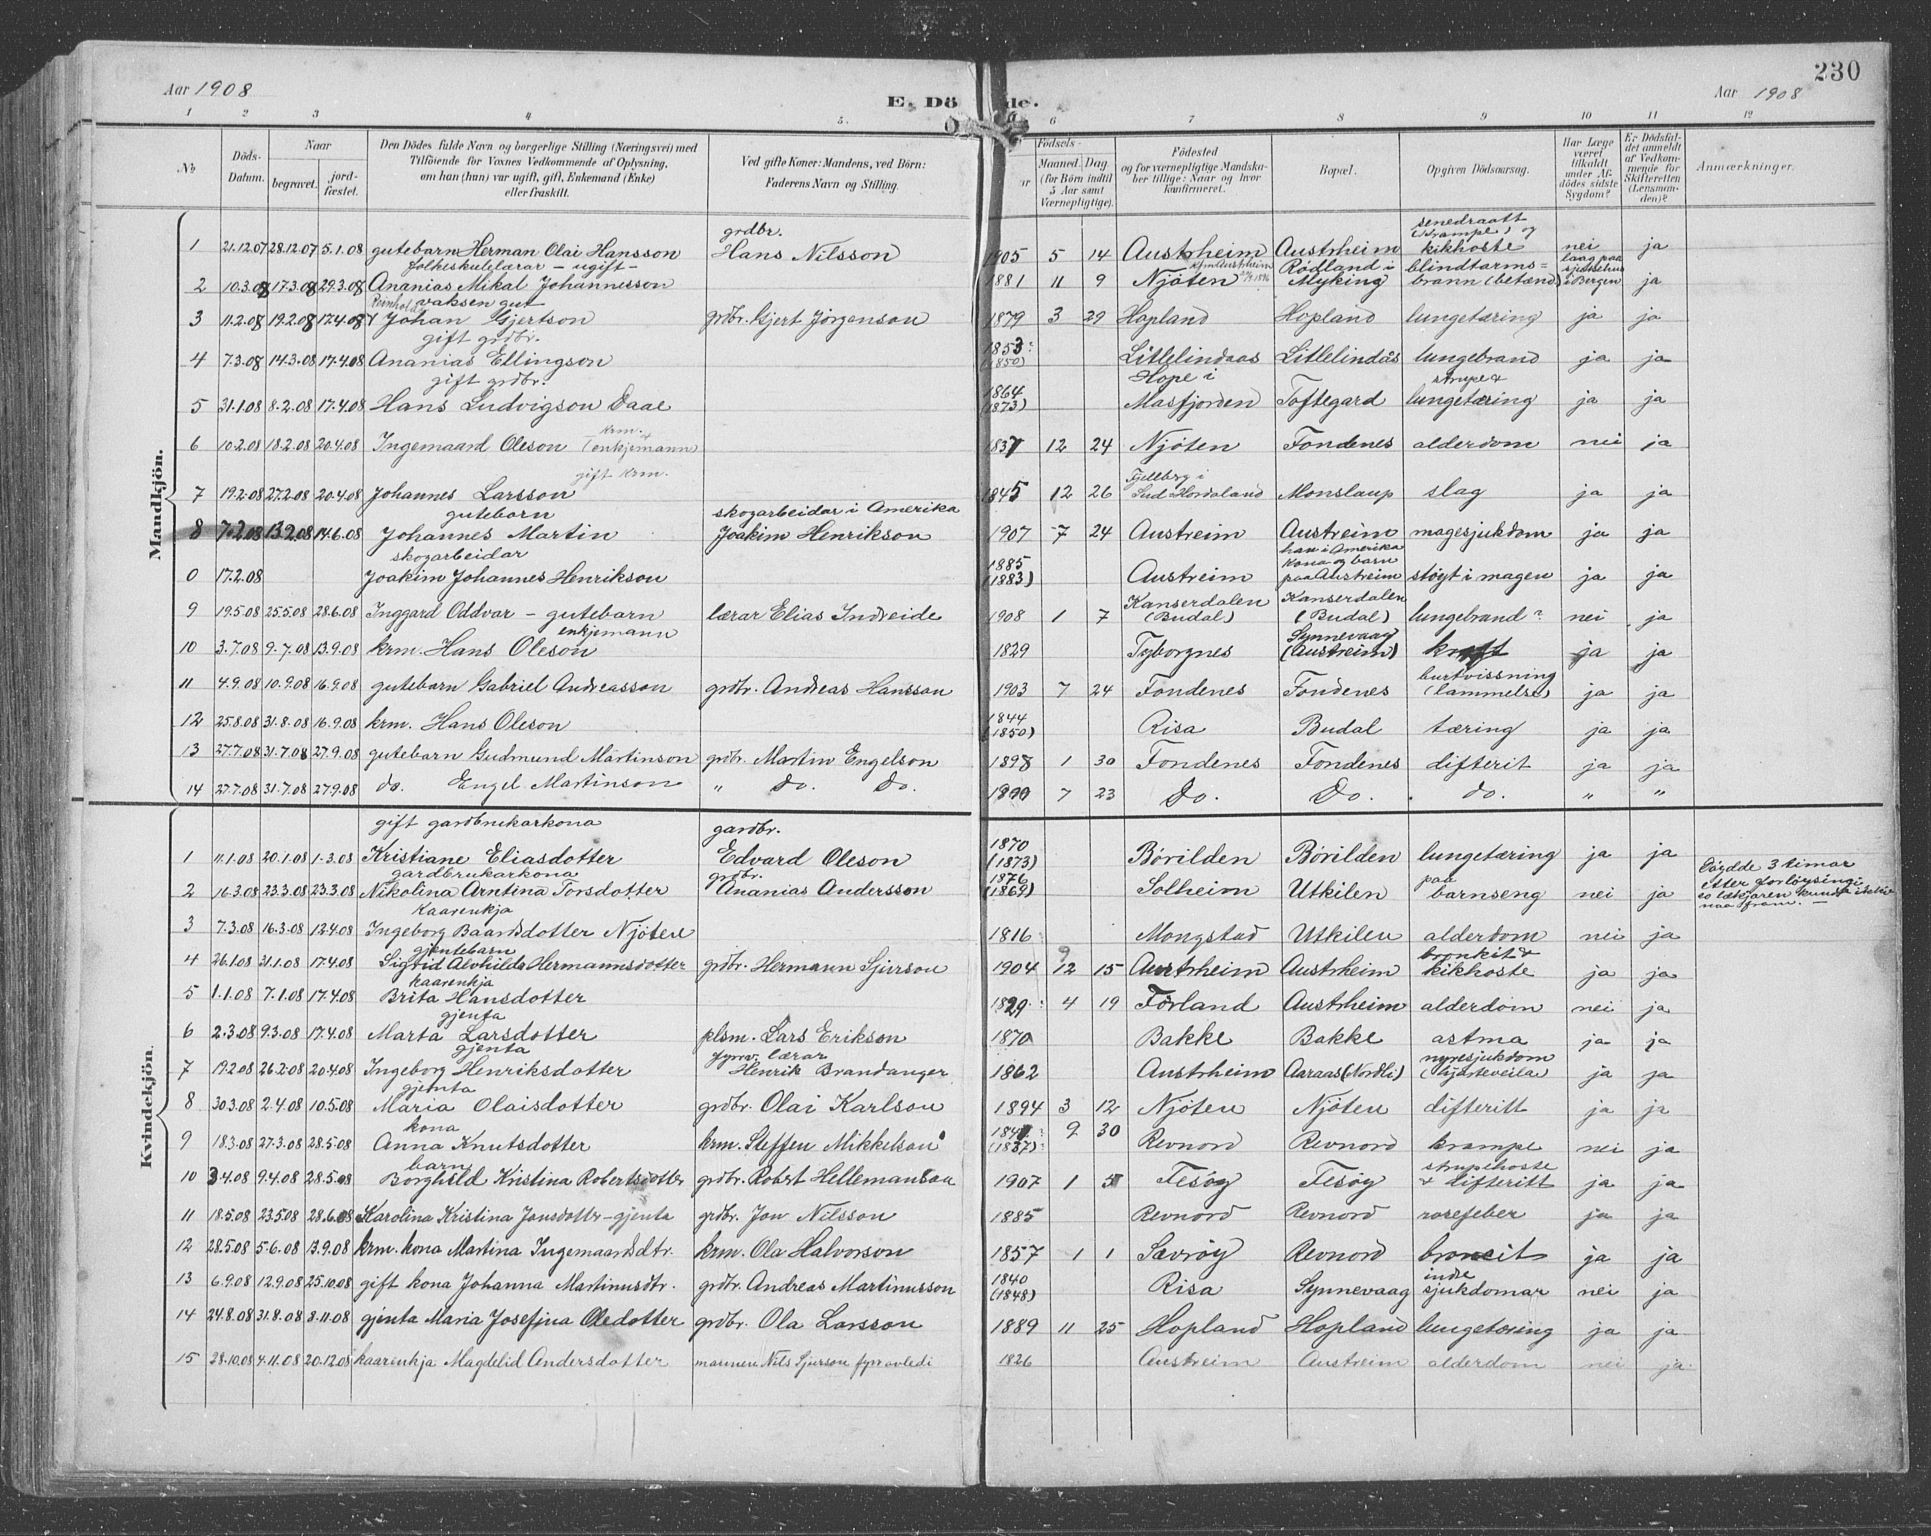 230
Aar 1908
E. Dö de.
Aar 1908
1 2 3 4 5. 6 7 8 9 10 11 12
No Döds-Datum. Naar begravet. jord-fæstet. Den Dödes fulde Navn og borgerlige Stilling (Næringsvei) med Tilföiende for Voxnes Vedkommende af Oplysning, om han (hun) var ugift, gift, Enkemand (Enke) eller fraskilt. Ved gifte Koner: Mandens, ved Börn: Faderens Navn og Stilling. Födsels- Maaned. Dag (for Börn indtil 5 Aar samt Værnepligtige). Födested og for værnepligtige Mandskaber tillige: Naar og hvor konfirmeret. Bopæl. Opgiven Dödsaarsag. Har Læge været tilkaldt under Afdödes sidste Sygdom? Er Dödsfaldet anmeldt af Vedkommende for Skifteretten (Lensmanden)? Anmærkninger.
Mandkjön.
1 21.12.07 28.12.07 5.1.08 gutebarn Herman Olai Hansson grdbr. Hans Nilsson 1905 5 14 Austrheim Austrheim senedraatt (krampe) og kikhoste nei ja
2 10.3.08 17.3.08 29.3.08 folkeskulelærar - ugift - Ananias Mikal Johannesson 1881 11 9 Njöten Rödland i Myking blindtarmsbrann (betænd) laag paa sjukehus i Bergen ja
3 11.2.08 19.2.08 17.4.08 Reinhold vaksen gut Johan Gjertson grdbr. Gjert Jörgenson 1879 3 29 Hopland Hopland lungetæring ja ja
4 7.3.08 14.3.08 17.4.08 gift grdbr. Ananias Ellingson 1853 (1850) Litlelindaas Litlelindås lungebrand ja ja
5 31.1.08 8.2.08 17.4.08 gift grdbr. Hans Ludvigson Daae 1864 (1873) Hope i Masfjorden Toftegard strupe & lungetæring ja ja
6 10.2.08 18.2.08 20.4.08 Ingemaard Oleson krm. (enkjemann) 1837 12 24 Njöten Fondenes alderdom nei ja
7 19.2.08 27.2.08 20.4.08 Johannes Larsson gift krm. 1845 12 26 Sud Hordaland Monslaup slag ja ja
8 7.2.08 13.2.08 14.6.08 gutebarn Johannes Martin skogarbeidar i Amerika Joakim Henrikson 1907 7 24 Austreim Austreim magesjukdom ja ja
0 17.2.08 skogarbeidar Joakim Johannes Henrikson 1885 (1883) Austreim han i Amerika kona og barn paa Austreim stögt i magen ja ja
9 19.5.08 25.5.08 28.6.08 Inggard Oddvar - gutebarn lærar Elias Indreide 1908 1 7 Kanserdalen (Budal) Kanserdalen (Budal) lungebrand? nei ja
10 3.7.08 9.7.08 13.9.08 krm. Hans Oleson enkjemann 1829 Tyborgnes Synnevaag (Austreim) kreft ja ja
11 4.9.08 10.9.08 16.9.08 gutebarn Gabriel Andreasson grdbr. Andreas Hansson 1903 7 24 Fondenes Fondenes burtvissning (lammelse) ja ja
12 25.8.08 31.8.08 16.9.08 krm. Hans Oleson 1844 (1850) Risa Budal tæring ja ja
13 27.7.08 31.7.08 27.9.08 gutebarn Gudmund Martinson grdbr. Martin Engelson 1898 1 30 Fondenes Fondenes difterit ja ja
14 27.7.08 31.7.08 27.9.08 do. Engel Martinson " Do. Do. 7 23 Do. Do. do. " "
Kvindekjön.
1 11.1.08 20.1.08 1.3.08 gift gardbrukarkona Kristiane Eliasdotter gardbr. Edvard Oleson 1870 (1873) Börilden Börilden lungetæring ja ja
2 16.3.08 23.3.08 23.3.08 gardbrukarkona Nikolina Arntina Torsdotter grdbr. Ananias Andersson 1876 (1869) Solheim Utkilen paa barnseng nei ja Döydde 3 timar etter forløysingi, so lækjaren kunde ikkje naa fram. -
3 7.3.08 16.3.08 12.4.08 kaarenkja Ingeborg Baardsdotter Njöten 1816 Mongstad Utkilen alderdom nei ja
4 26.1.08 31.1.08 17.4.08 gjentebarn Sigrid Alvhilda Hermannsdotter grdbr. Hermann Sjurson 1904 9 12 15 Austrheim Austrheim bronkit & kikhoste ja ja
5 1.1.08 7.1.08 17.4.08 kaarenkja Brita Hansdotter 1829 4 19 Förland Austrheim alderdom nei ja
6 2.3.08 9.3.08 17.4.08 gjenta Marta Larsdotter plsm. Lars Erikson 1870 Bakke Bakke astma ja ja
7 19.2.08 26.2.08 20.4.08 gjenta Ingeborg Henriksdotter fyrrv. lærar Henrik Brandanger 1862 Austrheim Aaraas (Nordli) nyresjukdom (hjarteveila) ja ja
8 30.3.08 2.4.08 10.5.08 gjenta Maria Olaisdotter grdbr. Olai Karlson 1894 3 12 Njöten Njöten difteritt ja ja
9 18.3.08 27.3.08 28.5.08 kona Anna Knutsdotter krm. Steffen Mikkelson (1837) 9 30 Revnord Revnord krampe nei ja
10 3.4.08 9.4.08 28.5.08 barn Borghild Kristina Robertsdotter grdbr. Robert Hellemanson 1907 1 5 Fesöy Fesöy strupehoste & difteritt ja ja
11 18.5.08 23.5.08 28.6.08 Karolina Kristina Jonsdotter - gjenta grdbr. Jon Nilsson 1885 Revnord Revnord rosefeber ja ja
12 28.5.08 5.6.08 13.9.08 krm. kona Martina Ingemaardsdtr. krm. Ola Halvorson 1857 1 1 Sævröy Revnord broncit ja ja
13 6.9.08 12.9.08 25.10.08 gift kona Johanna Martinusdtr. grdbr. Andreas Martinusson 1840 (1848) Risa Synnevaag indre sjukdomar nei ja
14 24.8.08 31.8.08 8.11.08 gjenta Maria Josefina Oledotter grdbr. Ola Larsson 1889 11 25 Hopland Hopland lungetæring ja ja
15 28.10.08 4.11.08 20.12.08 kaarenkja Magdelid Andersdotter mannen Nils Sjurson fyrr avledi 1826 Austreim Austreim alderdom nei ja